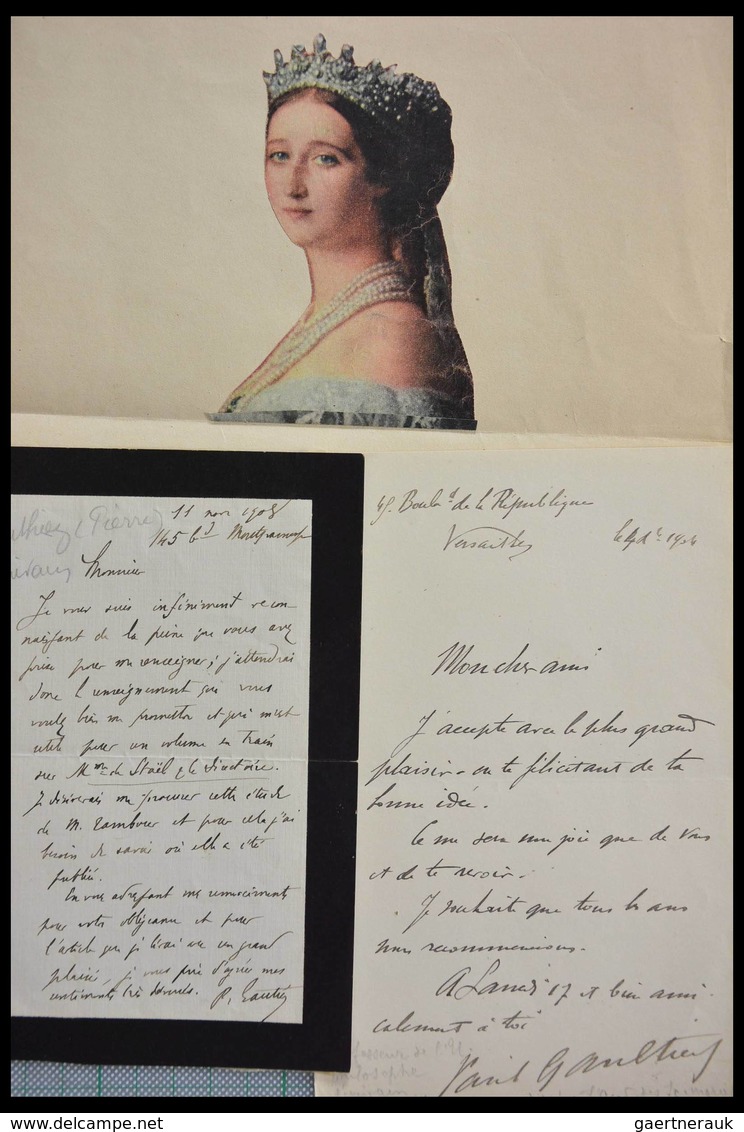 11 nov 1908
145 bd Montparnasse
Monsieur
Je vous suis infiniment recon
naissant de la peine que vous avez
prise pour me renseigner; j'attendrai
donc l'enseignement que vous
voulez bien me promettre et qui m'est
utile pour un volume en train
sur Mme de Staël & le Directoire.
Je désirerais me procurer cette étude
de M. et pour cela j'ai
besoin de savoir où elle a été
publiée.
En vous adressant mes remerciements
pour votre obligeance et pour
l'article que je lirai avec un grand
plaisir, je vous prie d'agréer mes
sentiments très dévoués. P. Gautier
(Pierre)
45. Boulrd de la République
Versailles le
Mon cher ami
J'accepte avec le plus grand
plaisir en te félicitant de ta
bonne idée.
Ce me sera une joie que de vous
et de te revoir.
Je souhaite que tous les ans
nous recommencions.
A Lundi 17 et bien ami
calement à toi
Paul Gaultier
gaertnerauk